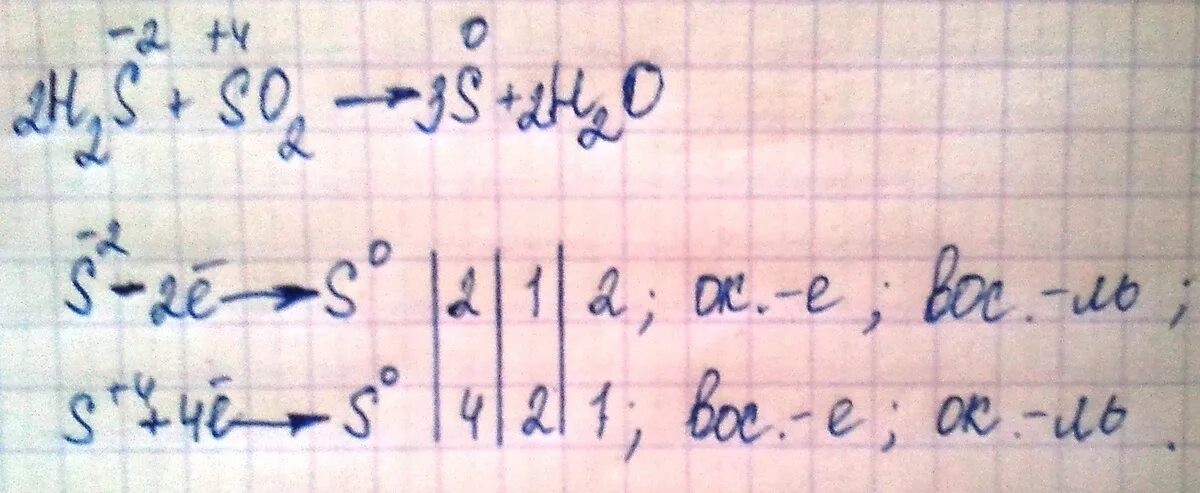 2H₂S⁻² + S⁺⁴O₂ → 3S⁰ + 2H₂O
S⁻² - 2ē → S⁰ | 2 | 1 | 2; ок.-е; вос.-ль;
S⁺⁴ + 4ē → S⁰ | 4 | 2 | 1; вос.-е; ок.-ль.